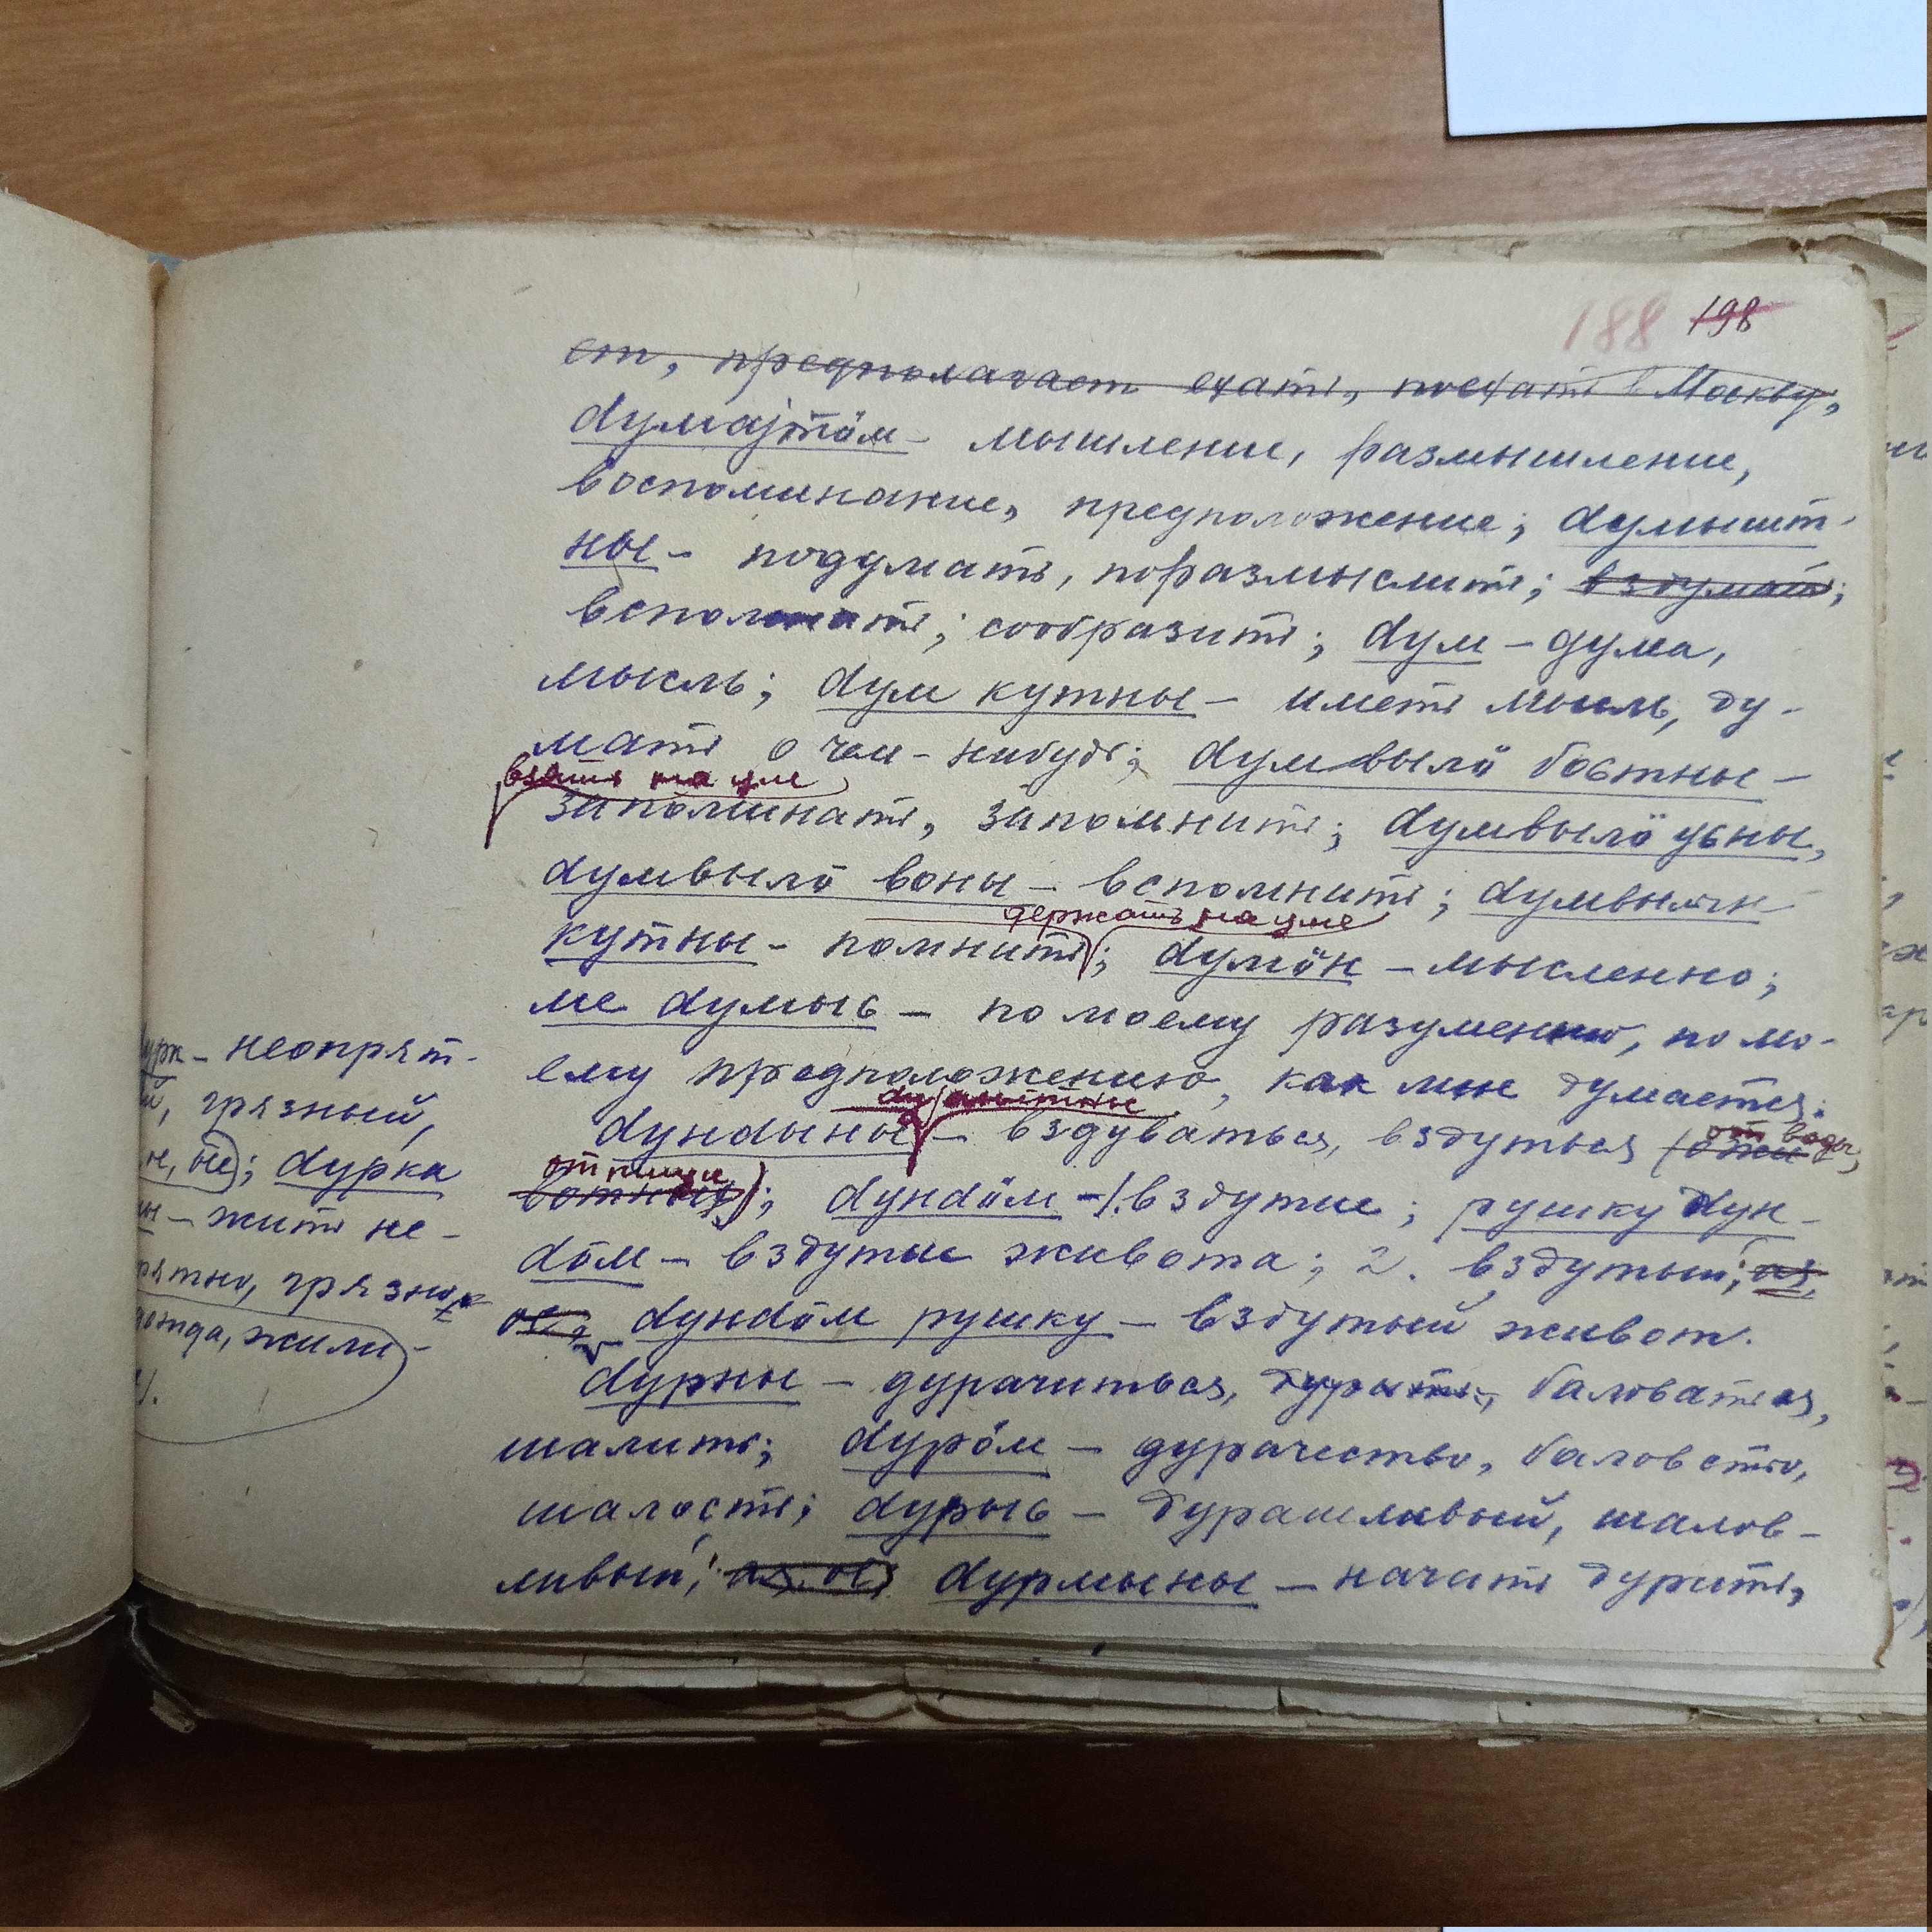 188 198
ет, предполагает ехать, поехать в Москву,
думајтӧм – мышление, размышление,
воспоминание, предположение; думышт-
ны – подумать, поразмыслить; вздумать;
вспомнить; сообразить; дум – дума,
мысль; дум кутны – иметь мысль, ду-
мать о чем-нибудь; думвылӧ боԍтны –
взять на ум
запоминать, запомнить; думвылӧ уԍны,
думвылӧ воны – вспомнить; думвылын
держать на уме
кутны – помнить; думӧн – мысленно;
ме думыԍ – по моему разумению, по мо-
ему предположению, как мне думается.
дундыны – вздуваться, вздуться (ожи
от воды,
от пищи
вотных); дундӧм – 1. вздутие; рушку дун-
дӧм – вздутие живота; 2. вздутый;
дундӧм рушку – вздутый живот.
дурны – дурачиться, дурить, баловаться,
шалить; дурӧм – дурачество, баловство,
шалость; дурыԍ – дурашливый, шалов-
ливый; дурмыны – начать дурить,
урк – неопрят-
й, грязный,
дурка
ны – жить не-
рятно, грязно
дежда, жили-